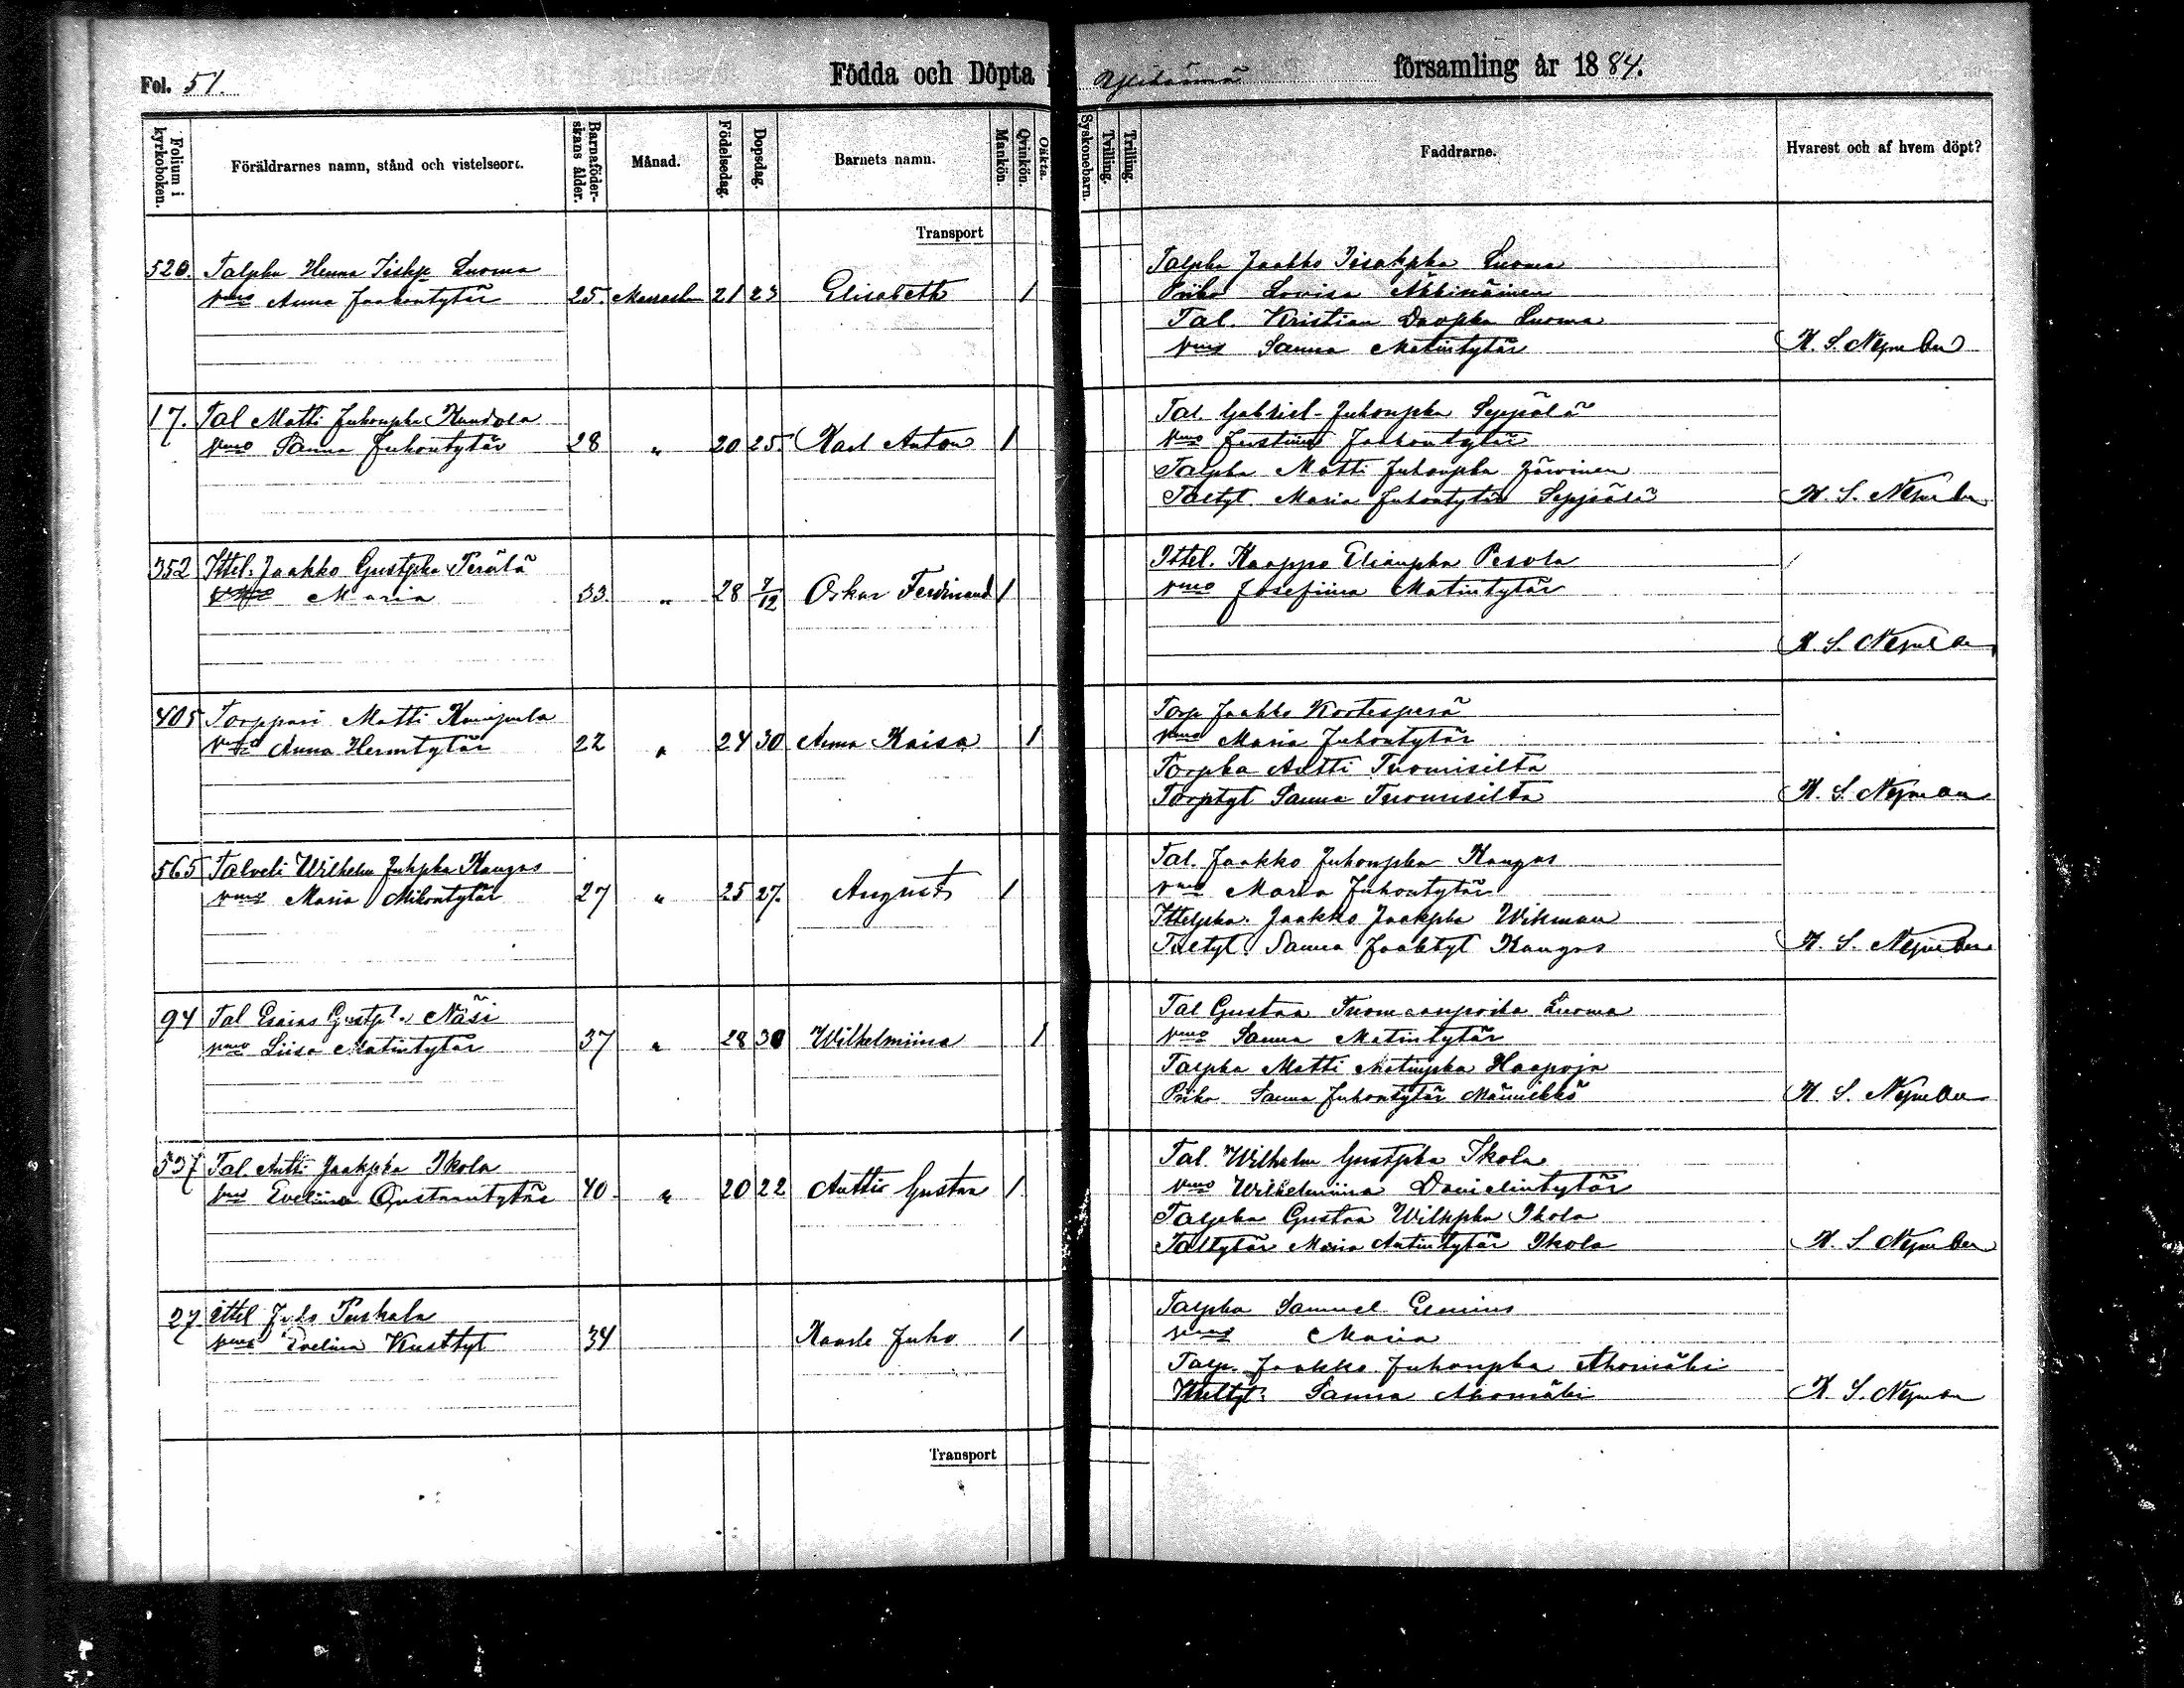 Fol. 51.
Födda och Döpta i Ylihärmä församling år 1884.
Folium i kyrkoboken.
Föräldrarnes namn, stånd och vistelseort.
Barnaföderskans ålder.
Månad.
Födelsedag.
Dopsdag.
Barnets namn.
Mankön.
Qvinkön.
Oäkta.
Syskonebarn.
Tvilling.
Trilling.
Faddrarne.
Hvarest och af hvem döpt?
Transport
520. Talpka Luoma
vmo Anna Jaakontytär 25. 21 23 Elisabeth 1
Talpka Jaakko Iisakpka Luoma
Piika Lovisa
Tal. Kristian Luoma
vmo Sanna Matintytär
K. S. Nyman
17. Tal Matti Juhonpka
vmo Sanna Juhontytär 28 " 20 25. Karl Anton 1
Tal. Gabriel Juhonpka Seppälä
vmo Justina Jaakontytär
Talpka Matti Juhonpka Järvinen
Taltyt. Maria Juhontytär Seppälä
K. S. Nyman
352 Ittel. Jaakko Gustpka Perälä
Maria 33. " 28 7/12 Oskar Ferdinand 1
Ittel. Kaappo Elianpka Pesola
vmo Josefiina Matintytär
K. S. Nyman
405 Torppari Matti
vmo Anna Hermtytär 22 " 24 30 Anna Kaisa 1
Torp Jaakko Kortesperä
vmo Maria Juhontytär
Torpka Antti Tuomisilta
Torptyt Sanna Tuomisilta
K. S. Nyman
565 Talveli Wilhelm Juhpka Kangas
vmo Maria Mikontytär 27 " 25 27. August 1
Tal. Jaakko Juhonpka Kangas
vmo Maria Juhontytär
Ittelpka. Jaakko Jaakpka Wikman
Taltyt. Sanna Jaaktyt Kangas
K. S. Nyman
94 Tal Esaias Gustp. Näsi
vmo Liisa Matintytär 37 " 28 30 Wilhelmiina 1
Tal Gustaa Tuomaanpoika Luoma
vmo Sanna Matintytär
Talpka Matti Matinpka Haapoja
Piika Sanna Juhontytär Männikkö
K. S. Nyman
537 Tal. Antti Jaakpka Ikola
vmo Eveliina Gustaantytär 40 " 20 22 Antti Gustaa 1
Tal. Wilhelm Gustpka Ikola
vmo Wilhelmiina Danielintytär
Talpka Gustaa Wilhpka Ikola
Taltytär Maria Antintytär Ikola
K. S. Nyman
27 Ittel Juho Puskala
vmo Evelina Kusttyt 34 Kaarle Juho 1
Talpka Samuel
vmo Maria
Talp. Jaakko Juhonpka Ahomäki
Itteltyt. Sanna Ahomäki
K. S. Nyman
Transport